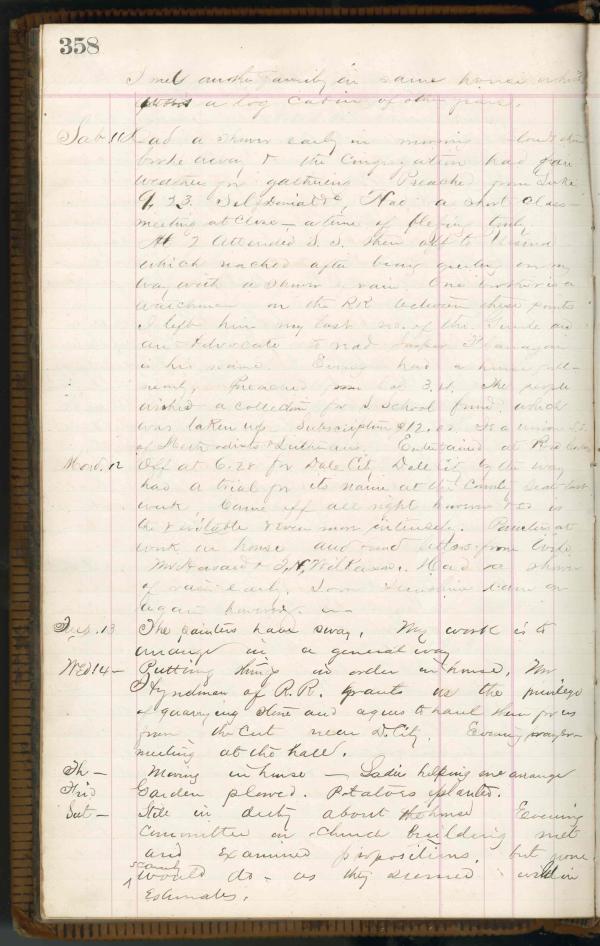 358
I met another family in same house which
a log cabin of other years.
Sab. 11 Had a shower early in morning clouds then
broke away & the Congregation had fair
weather for gathering. Preached from Luke
9, 23. Self Denial &c, Had a short Class
meeting at Close – a time of blessing truly
At 2 Attended S. S. then off to
which reached after being on my
way with a shower of rain. One brother is a
watchman on the RR between these points
I left him my last no. of the and
an Advocate to read Flanagan
is his name. Eveng had a house full
nearly. Preached from 3, 4. The people
wished a collection for S School fund which
was taken up Subscription $12.00. is a union S.S.
of Methodists & Lutherans. Entertained at
Mond. 12 Off at 6.28 for Dale City. Dale City by the way
has a trial for its name at the County Seat last
week. Came off all right however & is
the veritable & even more intensely. Painters at
work in house and read letters from
Mr Howard & J. H. Wilkinson. Had a shower
of rain early. Soon sunshine again
again however.
Tues. 13 The painters have sway. My work is to
arrange in a general way
Wed 14 – Putting things in order in house. Mr
Hyndman of R. R. grants us the privilege
of quarrying stone and agrees to haul them for us
from the Cut near D. City. Evening prayer-
meeting at the hall.
Th – Moving in house – Ladies helping me arrange
Frid Garden plowed. Potatoes planted.
Sat – Still in duty about the house Evening
Committee on Church building met
and examined propositions, but none
would do – as they seemed wild in
scarcely
Estimates.